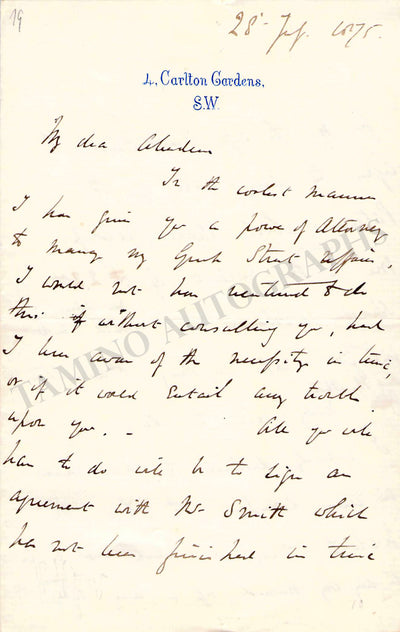 19
28 July 1875.
4, Carlton Gardens,
S.W.
My dear Aberdeen
In the coolest manner
I have given you a power of Attorney
to manage my Greek Street affairs,
I would not have ventured to do
this if without consulting you, had
I been aware of the necessity in time,
or if it would entail any trouble
upon you. - All you will
have to do will be to sign an
agreement with Mr Smith which
has not been finished in time
TAMINO AUTOGRAPHS